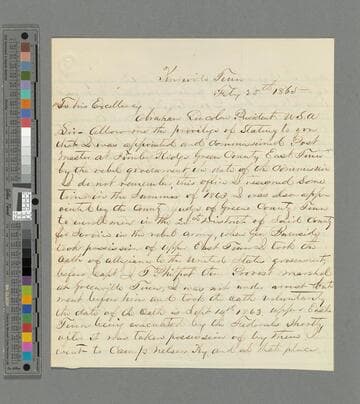 Knoxville Tenn
Feby 25th 1865
To his Excellency
Abraham Lincoln President U.S.A
Sir - Allow me the privilege of Stating to you
that I was appointed and Commissioned Post
master at Timber Ridge Green County East Tenn
by the rebel government in date of the Commission
I do not remember this office I resigned Some
time in the Summer of 1863 I was also appo-
inted by the County Court of Green County Tenn
to in the 25th District of Said County
for Service in the rebel army, when Gen Burnside
took possession of upper East Tenn I took the
oath of allegiance to the United States government
before Capt Provost marshal
in Greenville Tenn, I was not under arrest but
went before him and took the oath voluntarily
the date of the Oath is Sept 19th 1863. upper East
Tenn being evacuated by the Federals Shortly
after it was taken possession of by them I
went to Camp Nelson Ky and at that place